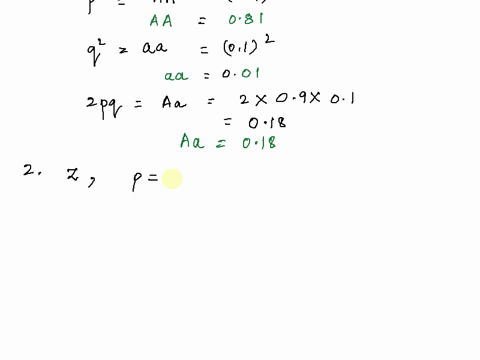 AA = 0.81
q² = aa = (0.1)²
aa = 0.01
2pq = Aa = 2 × 0.9 × 0.1
= 0.18
Aa = 0.18
2. Z, p =